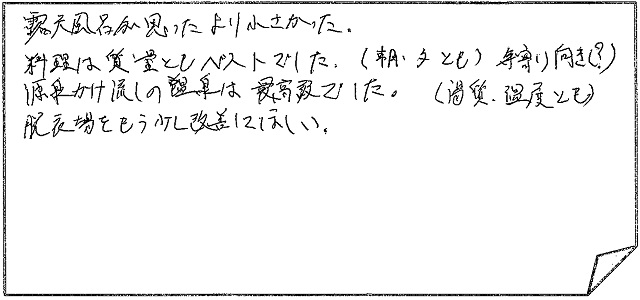 露天風呂が思ったより小さかった。
料理は質量ともベストでした。(朝・夕とも)年寄り向き(?)
源泉かけ流しの温泉は最高でした。(湯質・温度とも)
脱衣場をもう少し改善してほしい。